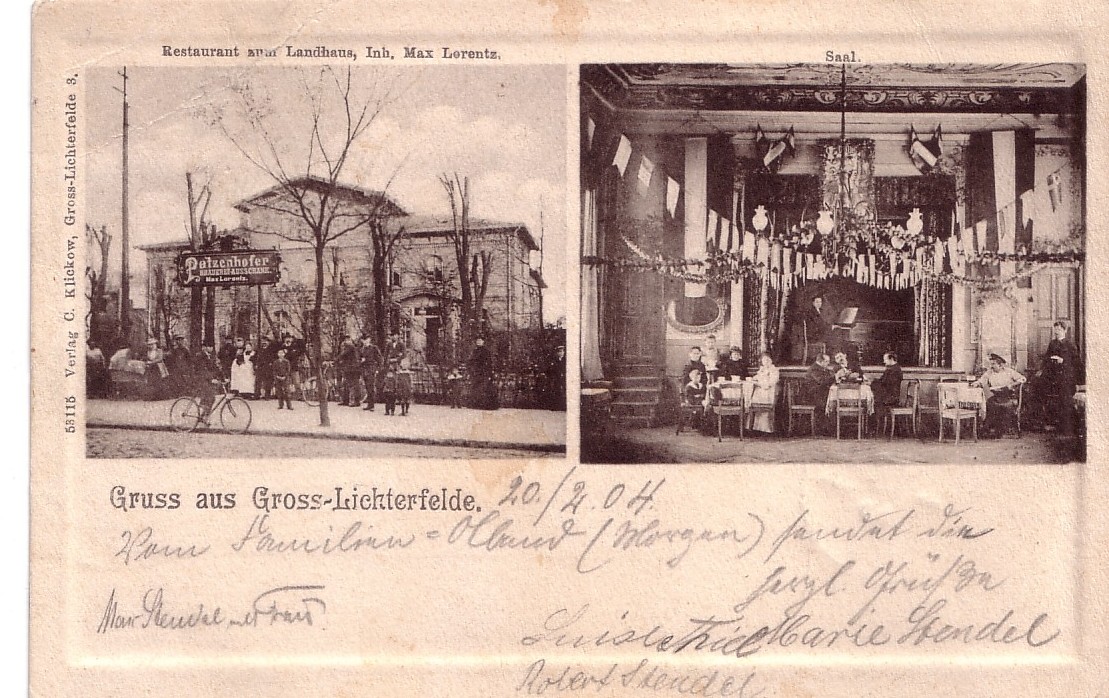 Restaurant zum Landhaus, Inh. Max Lorentz.
Saal.
53115 Verlag C. Klickow, Gross-Lichterfelde 3.
Patzenhofer
BRAUEREI-AUSSCHANK.
Max Lorentz.
Gruss aus Gross-Lichterfelde.
20./2.04.
Vom Familien=Abend (Morgen) sendet die
herzl. Grüße
Max Stendel u. Frau.
Luise Marie Stendel
Robert Stendel